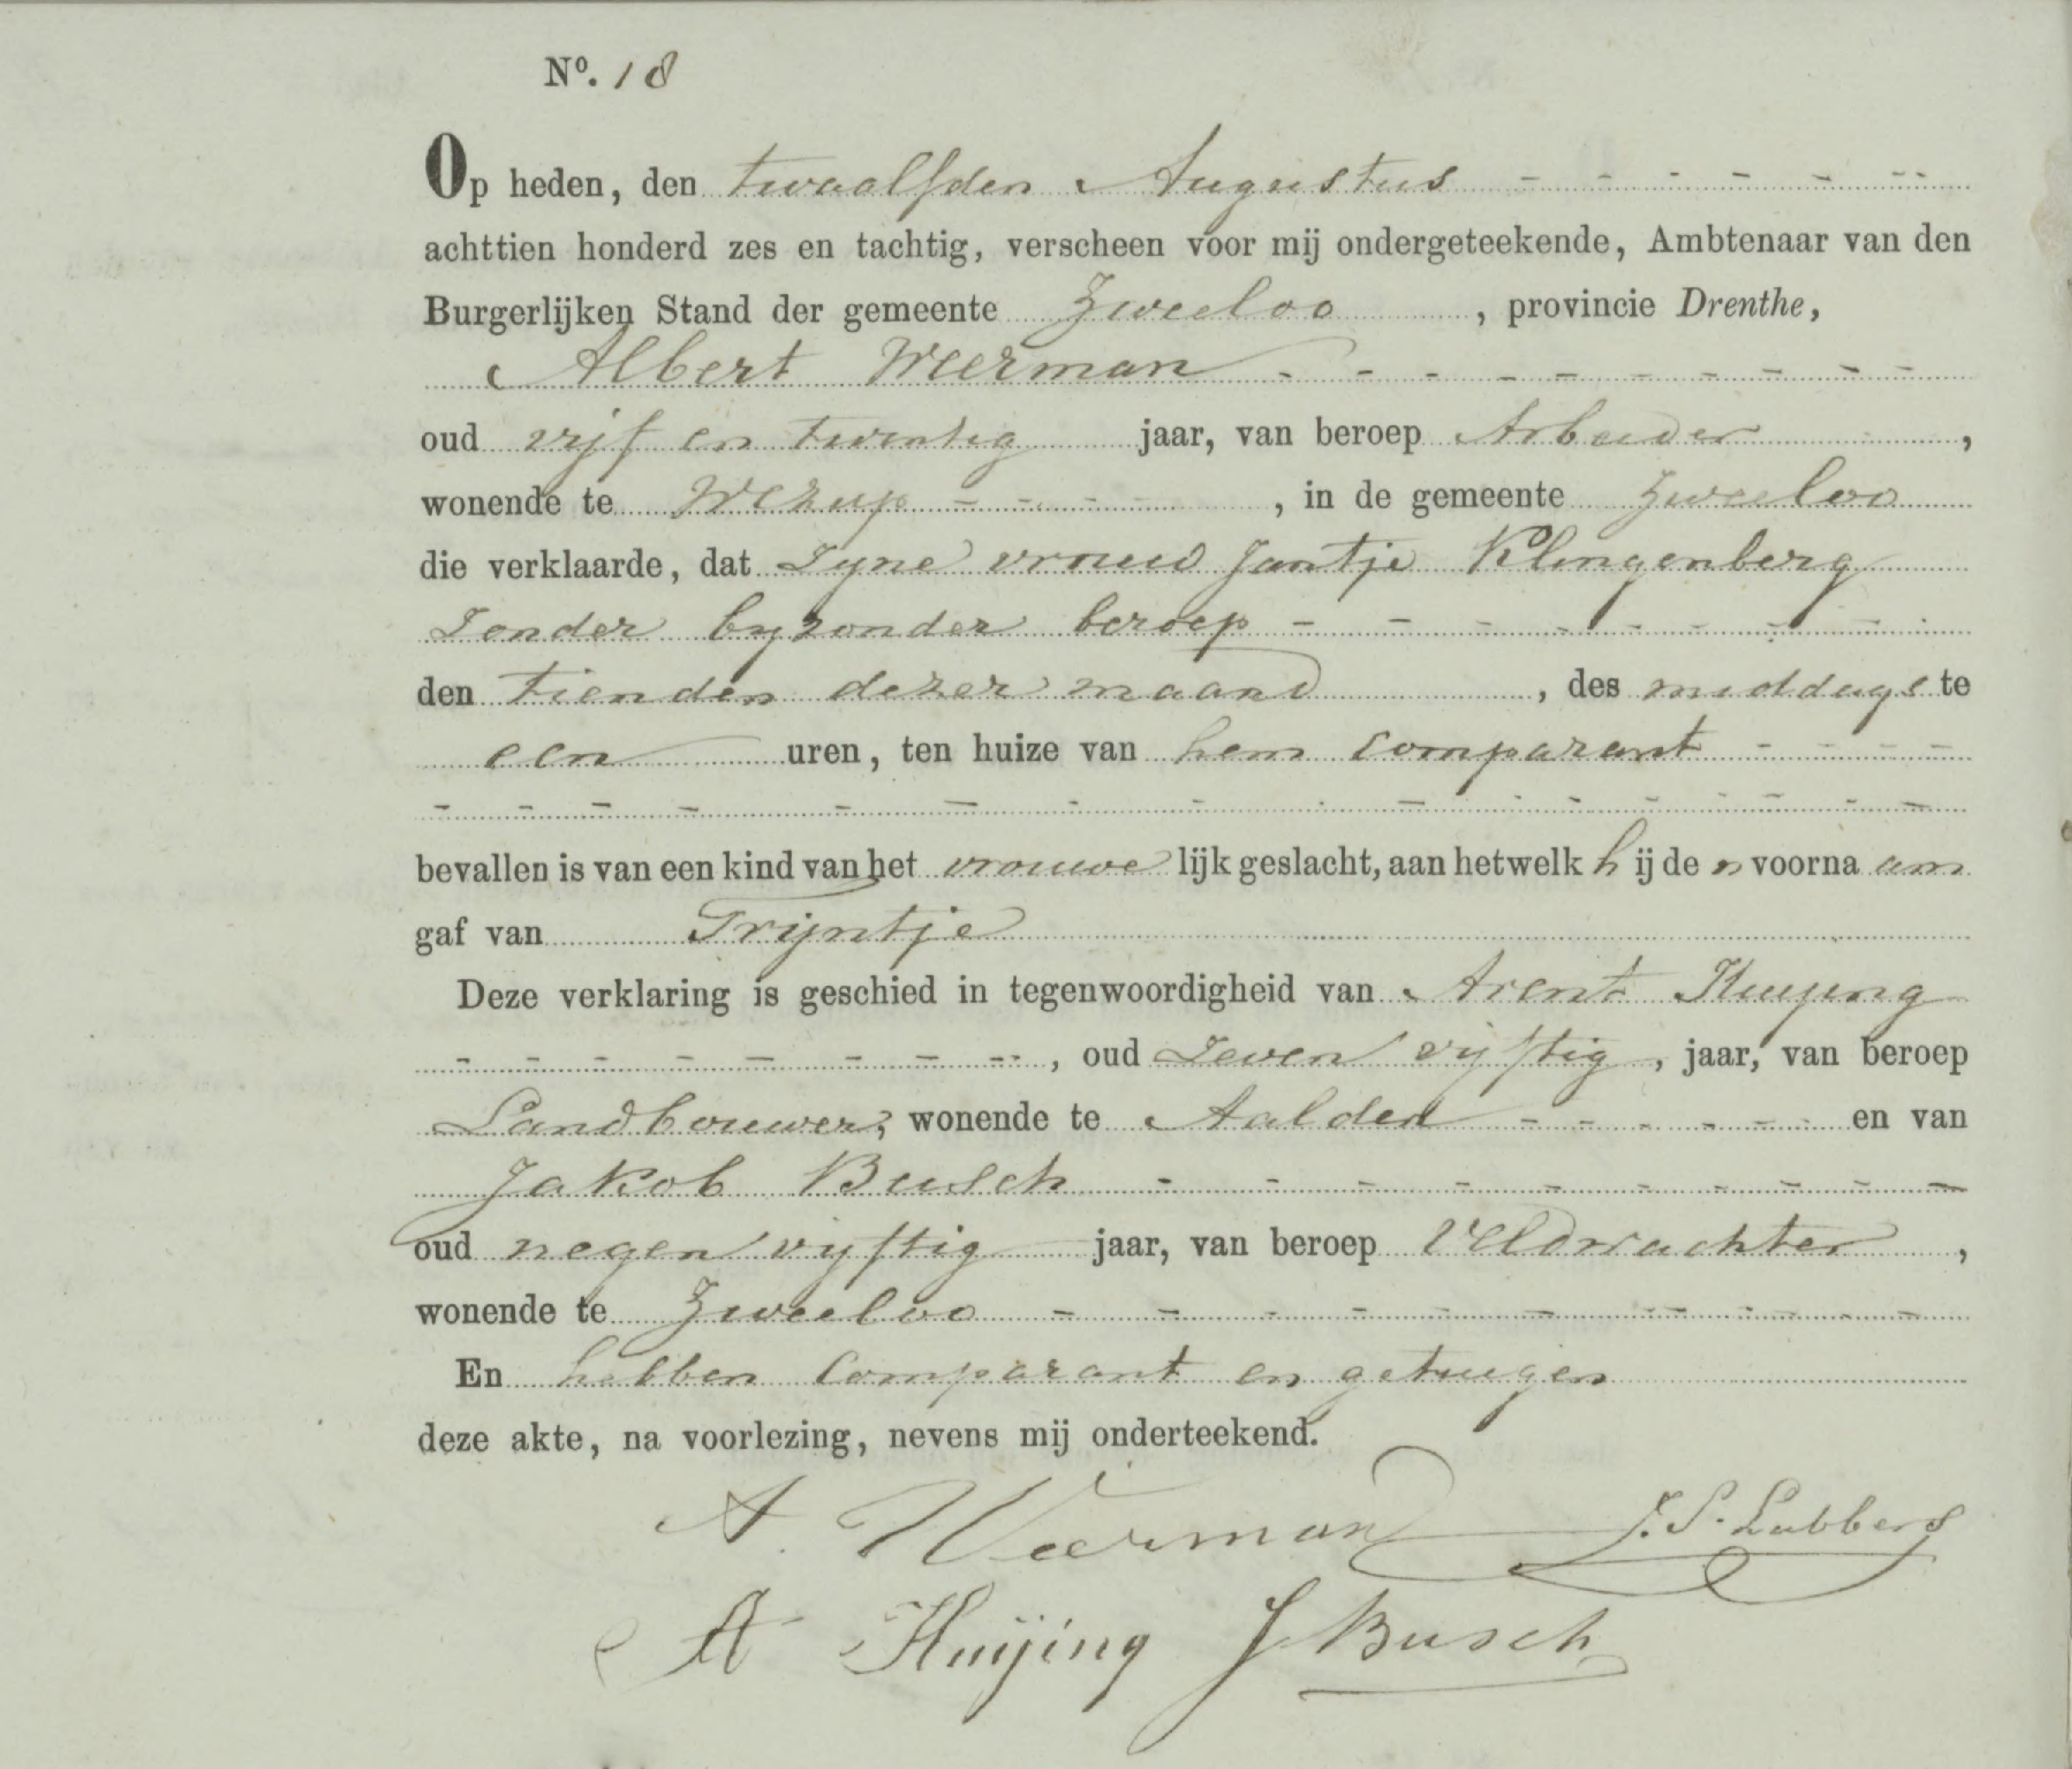 Nº. 18
Op heden, den twaalfden Augustus - - - - - -
achttien honderd zes en tachtig, verscheen voor mij ondergeteekende, Ambtenaar van den
Burgerlijken Stand der gemeente Zweeloo, provincie Drenthe,
Albert Weerman - - - - - - - - - -
oud vijf en twintig jaar, van beroep Arbeider,
wonende te Wezup - - - -, in de gemeente Zweeloo
die verklaarde, dat Zyne vrouw Jantje Klingenberg
Zonder byzonder beroep - - - - - - - - -
den tienden dezer maand, des middags te
een uren, ten huize van hem Comparant - - - -
- - - - - - - - - - - - - - - - -
bevallen is van een kind van het vrouwelijk geslacht, aan hetwelk hij den voornaam
gaf van Trijntje
Deze verklaring is geschied in tegenwoordigheid van Arent Huijing
- - - - - - - - -, oud Zeven vijftig, jaar, van beroep
Landbouwer, wonende te Aalden - - - - - en van
Jakob Busch - - - - - - - - -
oud negen vijftig jaar, van beroep Veldwachter,
wonende te Zweeloo - - - - - - - - - -
En hebben Comparant en getuigen
deze akte, na voorlezing, nevens mij onderteekend.
A. Weerman J. S. Lubbers
A Huijing J Busch